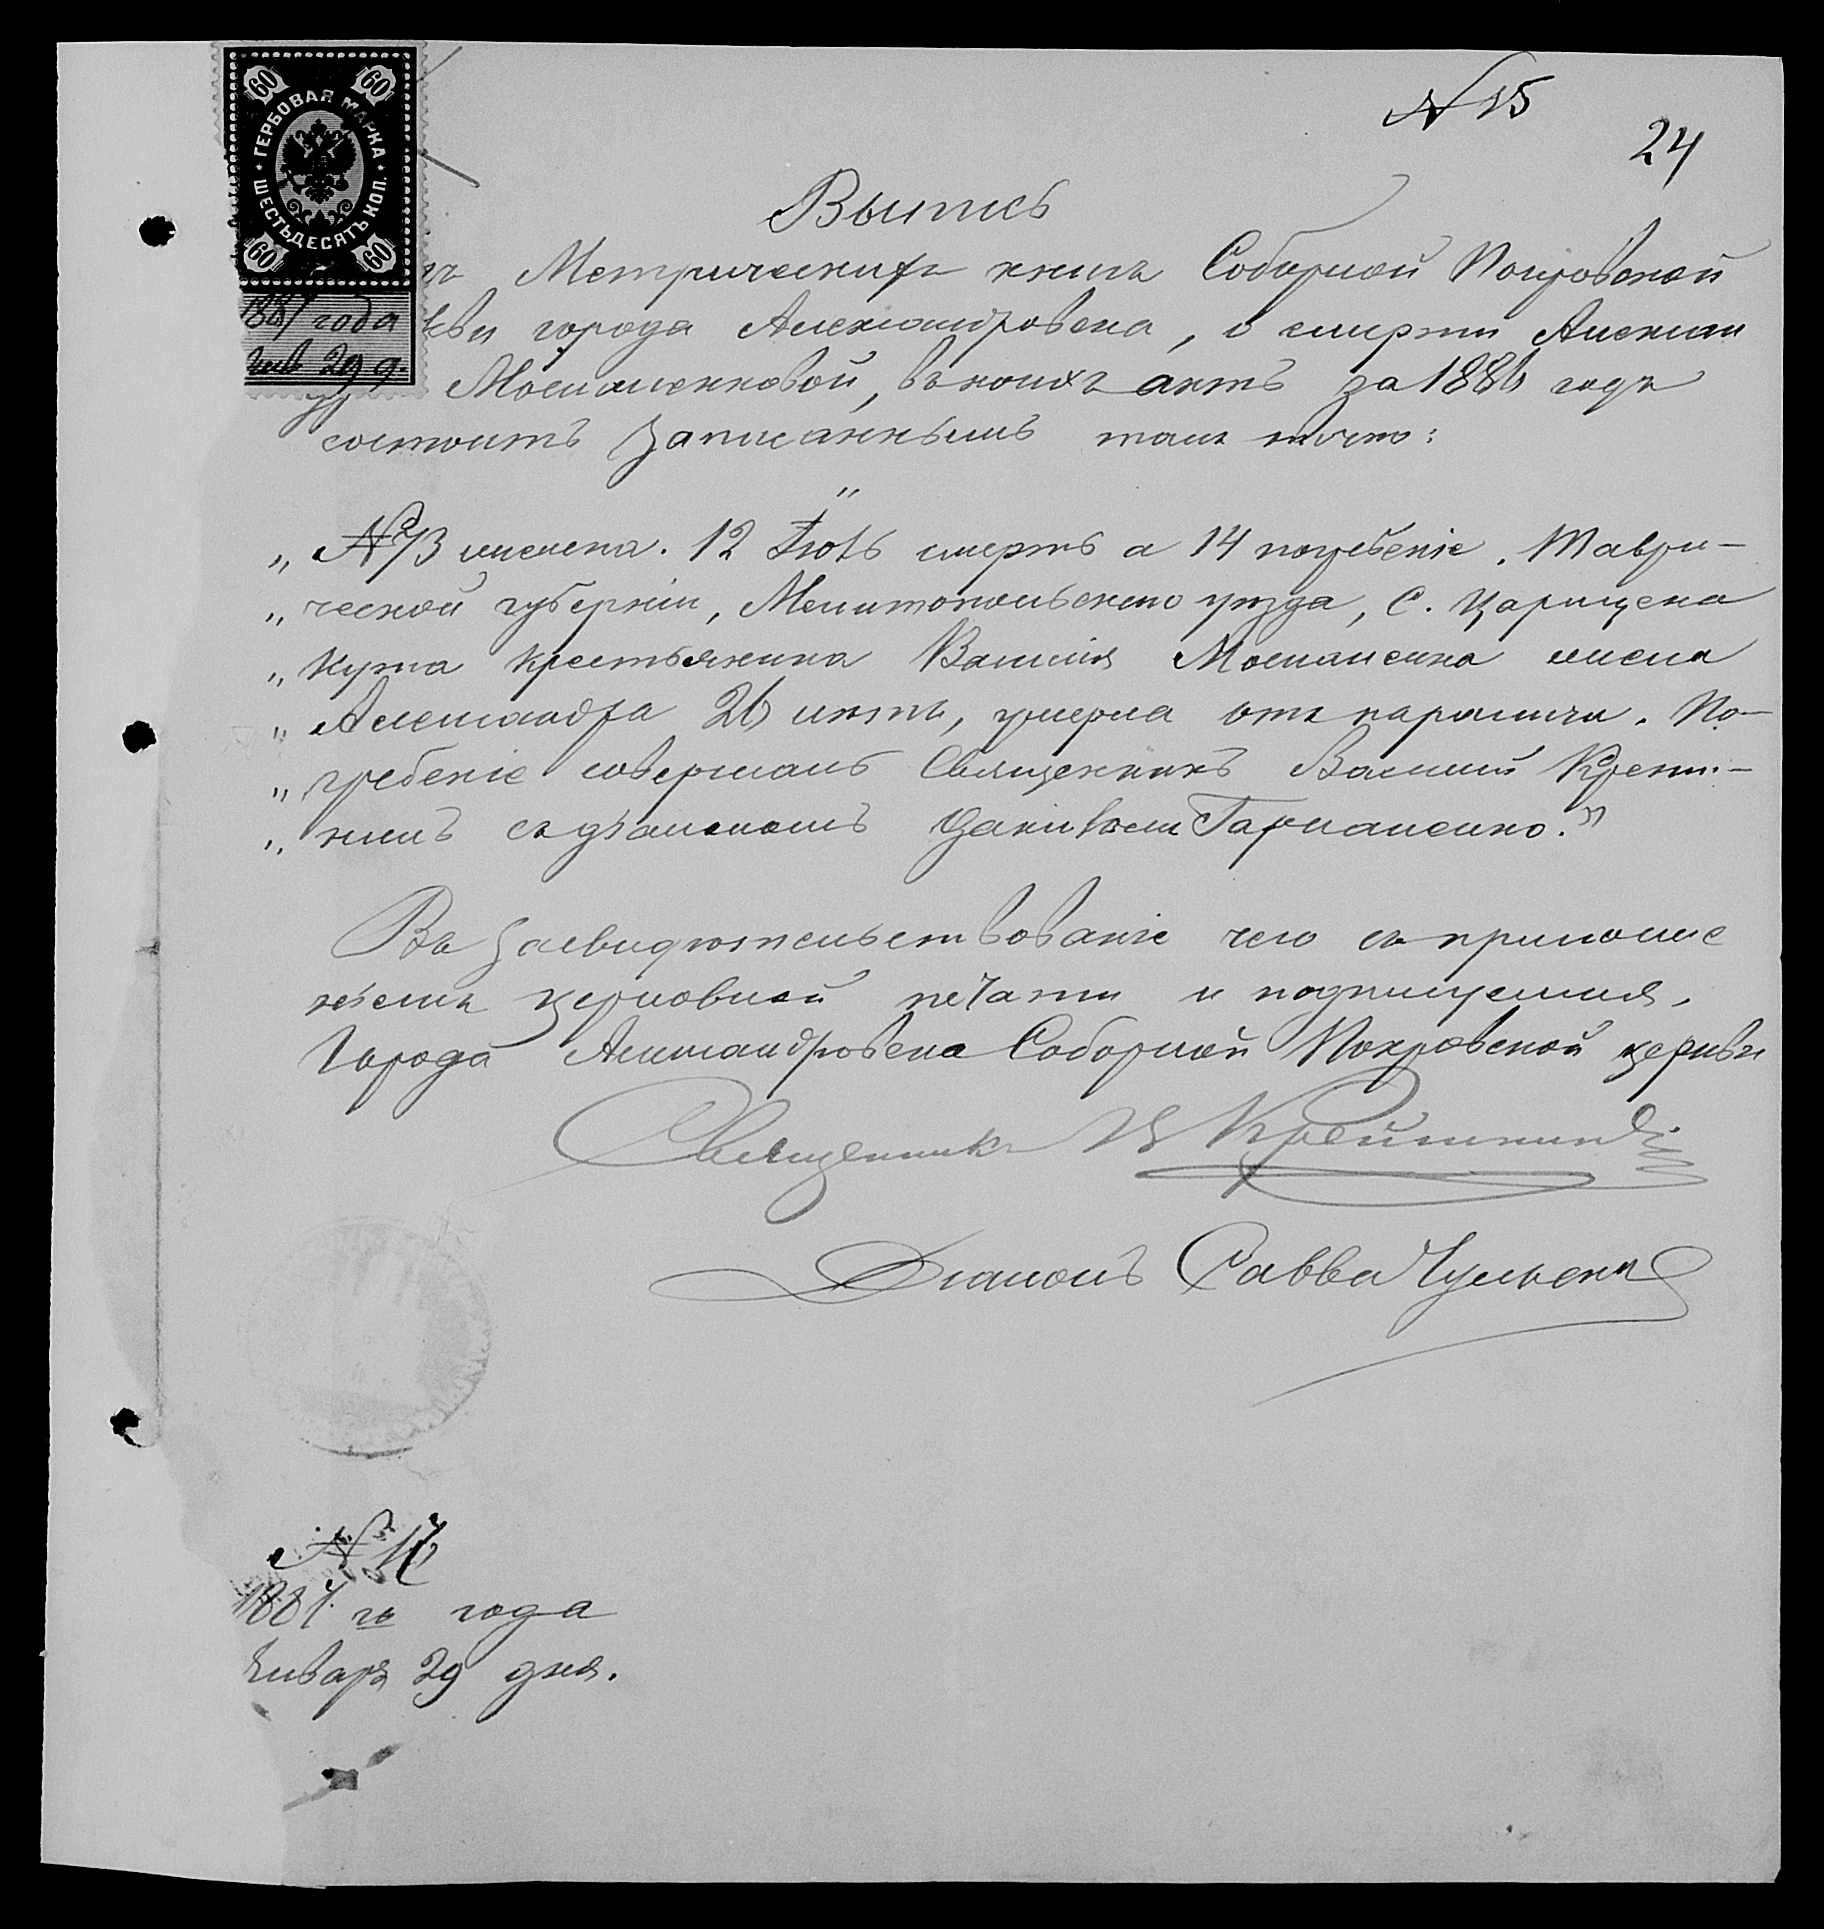 N 15
24
60 60
ГЕРБОВАЯ МАРКА
ШЕСТЬДЕСЯТЪ КОП.
60 60
1887 года
Янв 29 д.
Выпись
изъ Метрическихъ книгъ Соборной Покровской
церкви города Александровска, о смерти Алексан
дры Москаленковой, въ коихъ актъ за 1886 годъ
состоитъ записаннымъ такъ точно:
„ № 73 женска. 12 Іюль смерть а 14 погребеніе. Таври-
„ ческой губерніи, Мелитопольскаго уѣзда, С. Царицена
„ Кута крестьянина Василія Москаленка жена
„ Александра 26 лѣтъ, умерла отъ паралича. По-
„ гребеніе совершалъ Священникъ Василій Крейш-
„ нинъ съ діакономъ
„
Въ засвидѣтельствованіе чего съ приложе
ніемъ церковной печати и подпишемся.
Города Александровска Соборной Покровской церкви
Священникъ В Крейшнинъ
Діаконъ Савва
№ 16
1887 го года
Января 29 дня.